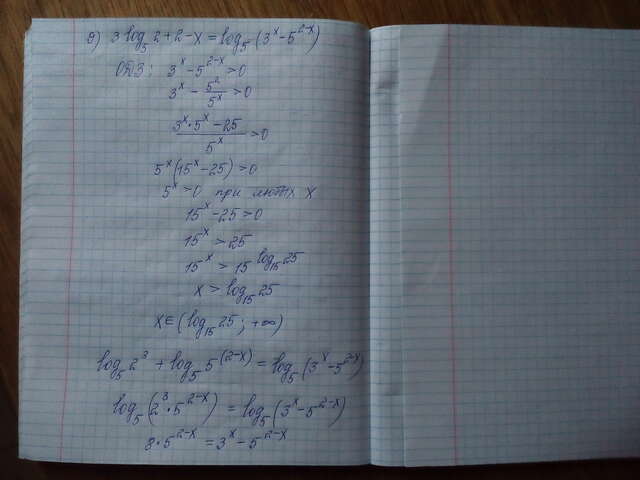 д) 3 log₅ 2 + 2 - x = log₅ (3^x - 5^(2-x))
ОДЗ: 3^x - 5^(2-x) > 0
3^x - 5²/5^x > 0
(3^x · 5^x - 25)/5^x > 0
5^x (15^x - 25) > 0
5^x > 0 при любых x
15^x - 25 > 0
15^x > 25
15^x > 15^(log₁₅ 25)
x > log₁₅ 25
x ∈ (log₁₅ 25; +∞)
log₅ 2³ + log₅ 5^(2-x) = log₅ (3^x - 5^(2-x))
log₅ (2³ · 5^(2-x)) = log₅ (3^x - 5^(2-x))
8 · 5^(2-x) = 3^x - 5^(2-x)